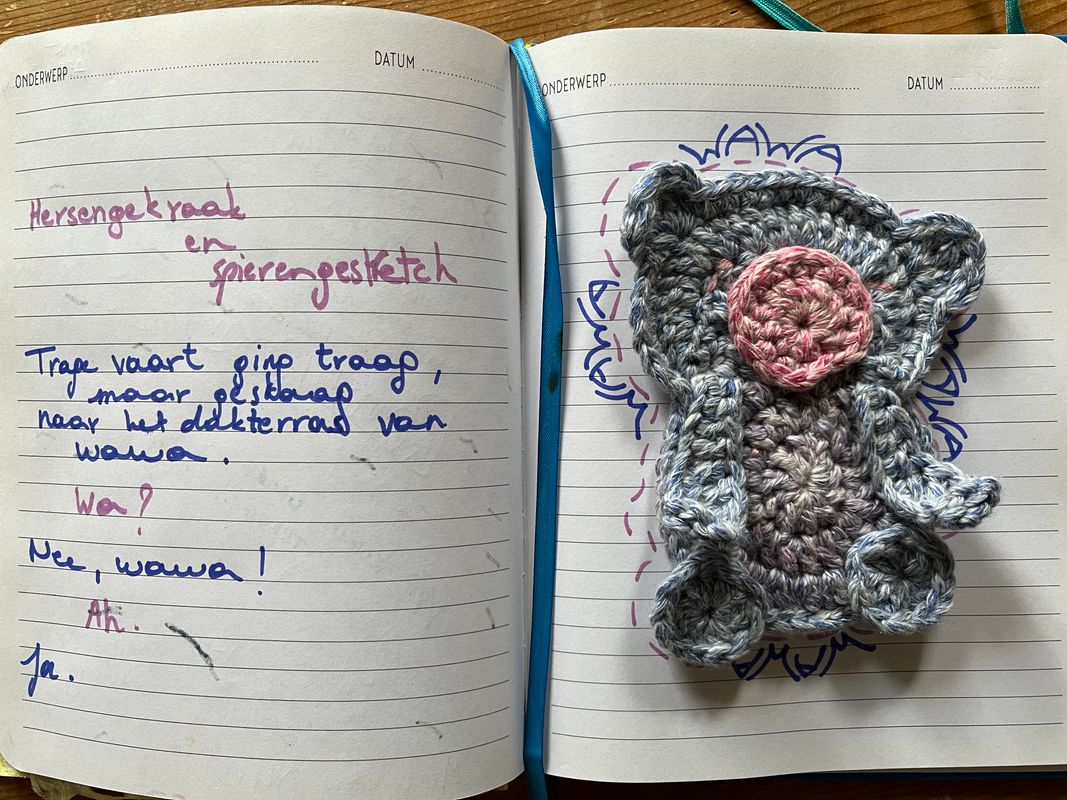 ONDERWERP
DATUM
Hersengekraak
en
spierengestretch
Trage vaart ging traag,
maar gestaag
naar het dakterras van
wawa.
Wa?
Nee, wawa!
Ah.
Ja.
ONDERWERP
DATUM